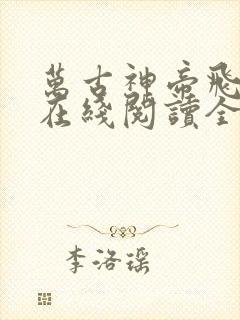 萬古神帝飛
在綫閱讀全
李洛瑶